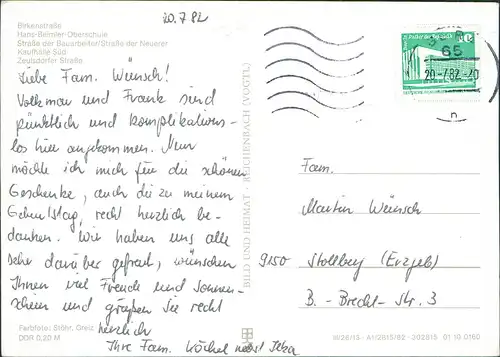 20.7.82
Birkenstraße
Hans-Beimler-Oberschule
Straße der Bauarbeiter/Straße der Neuerer
Kaufhalle Süd
Zeulsdorfer Straße
Liebe Fam. Wünsch!
Volkmar und Frank sind
pünktlich und komplikations-
los hier angekommen. Nun
möchte ich mich für die schönen
Geschenke, auch die zu meinem
Geburtstag, recht herzlich be-
danken. Wir haben uns alle
sehr darüber gefreut, wünschen
Ihnen viel Freude und Sonnen-
schein und grüßen Sie recht
herzlich
Ihre Fam. Köchel nebst
Farbfoto: Stöhr, Greiz
DDR 0,20 M
BILD UND HEIMAT · REICHENBACH (VOGTL)
65
20.-7.82.-20
n
Fam.
Martin Wünsch
9150 Stollberg (Erzgeb)
B.-Brecht-Str. 3
A1/2615/82 01 10 0160